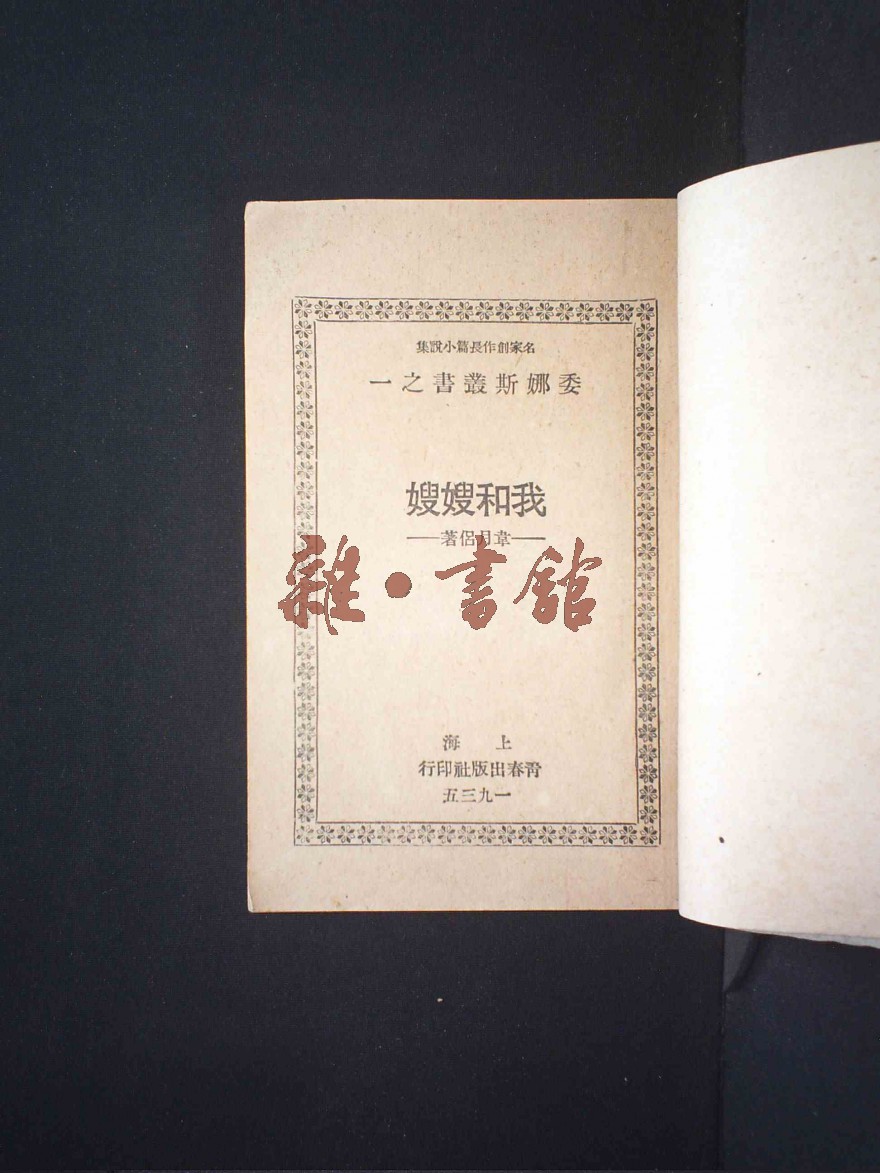 名家創作長篇小說集
委娜斯叢書之一
我和嫂嫂
——韋月侶著——
雜·書館
上海
青春出版社印行
一九三五